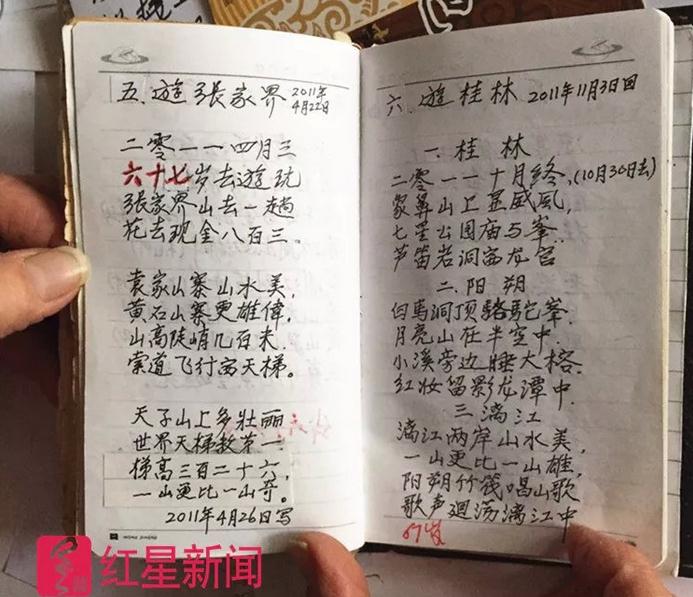 五.遊張家界 2011年
4月22日
二零一一四月三
六十七岁去遊玩
張家界山去一趟
花去现金八百三。
袁家山寨山水美,
黄石山寨更雄偉,
山高陡峭几百米.
索道飞行密天梯。
天子山上多壮丽
世界天梯数第一
梯高三百二十六,
一山更比一山奇。
2011年4月26日写
六.遊桂林 2011年11月3日回
一.桂林
二零一一十月終,(10月30日去)
象鼻山上显威風,
七星公园庙与峯.
芦笛岩洞密龙宫
二.阳朔
白馬洞顶駱駝峯.
月亮山在半空中.
小溪旁边睡大榕.
红妆留影龙潭中.
三.漓江
漓江两岸山水美,
一山更比一山雄,
阳朔竹筏唱山歌
歌声迴荡漓江中
67岁
红星新闻